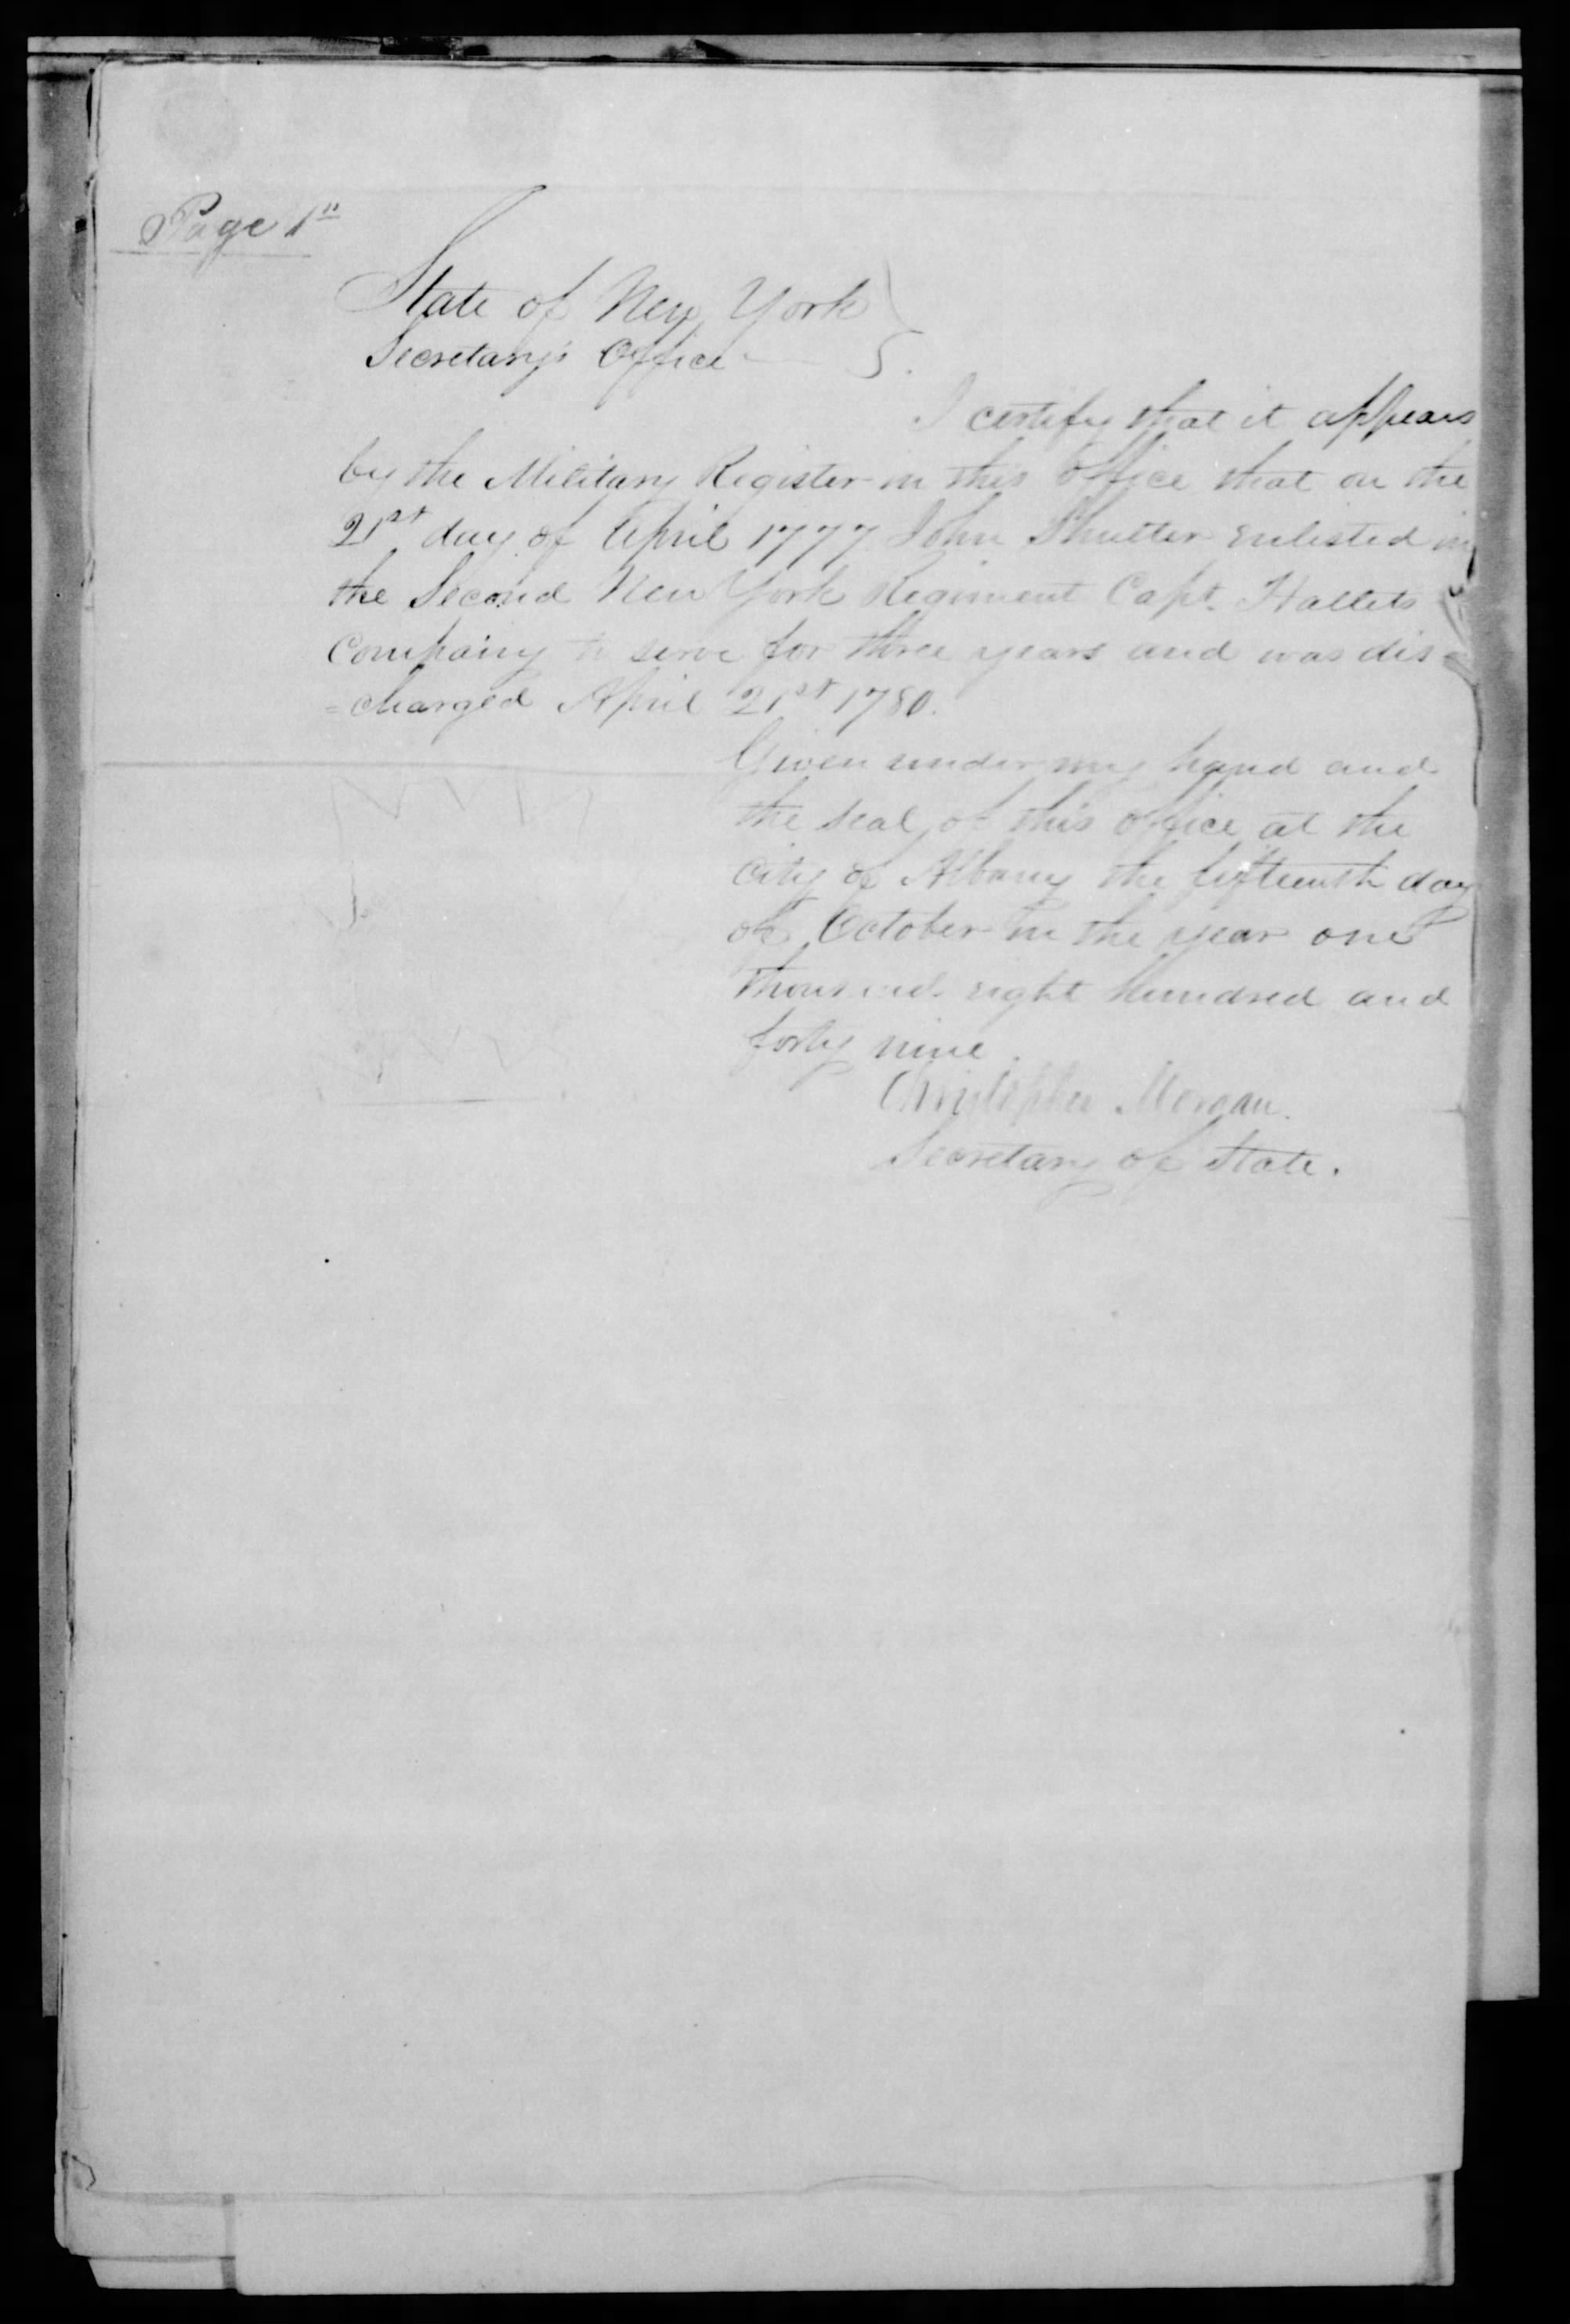 Page 1"
State of New York
Secretary's Office
I certify that it appears
by the Military Register in this Office that on the
21st day of April 1777 John Shutter enlisted in
the Second New York Regiment Capt. Hallets
Company to serve for three years and was dis-
=charged April 21st 1780.
Given under my hand and
the seal of this office at the
City of Albany the fifteenth day
of October in the year one
thousand eight hundred and
forty nine.
Christopher Morgan.
Secretary of State.